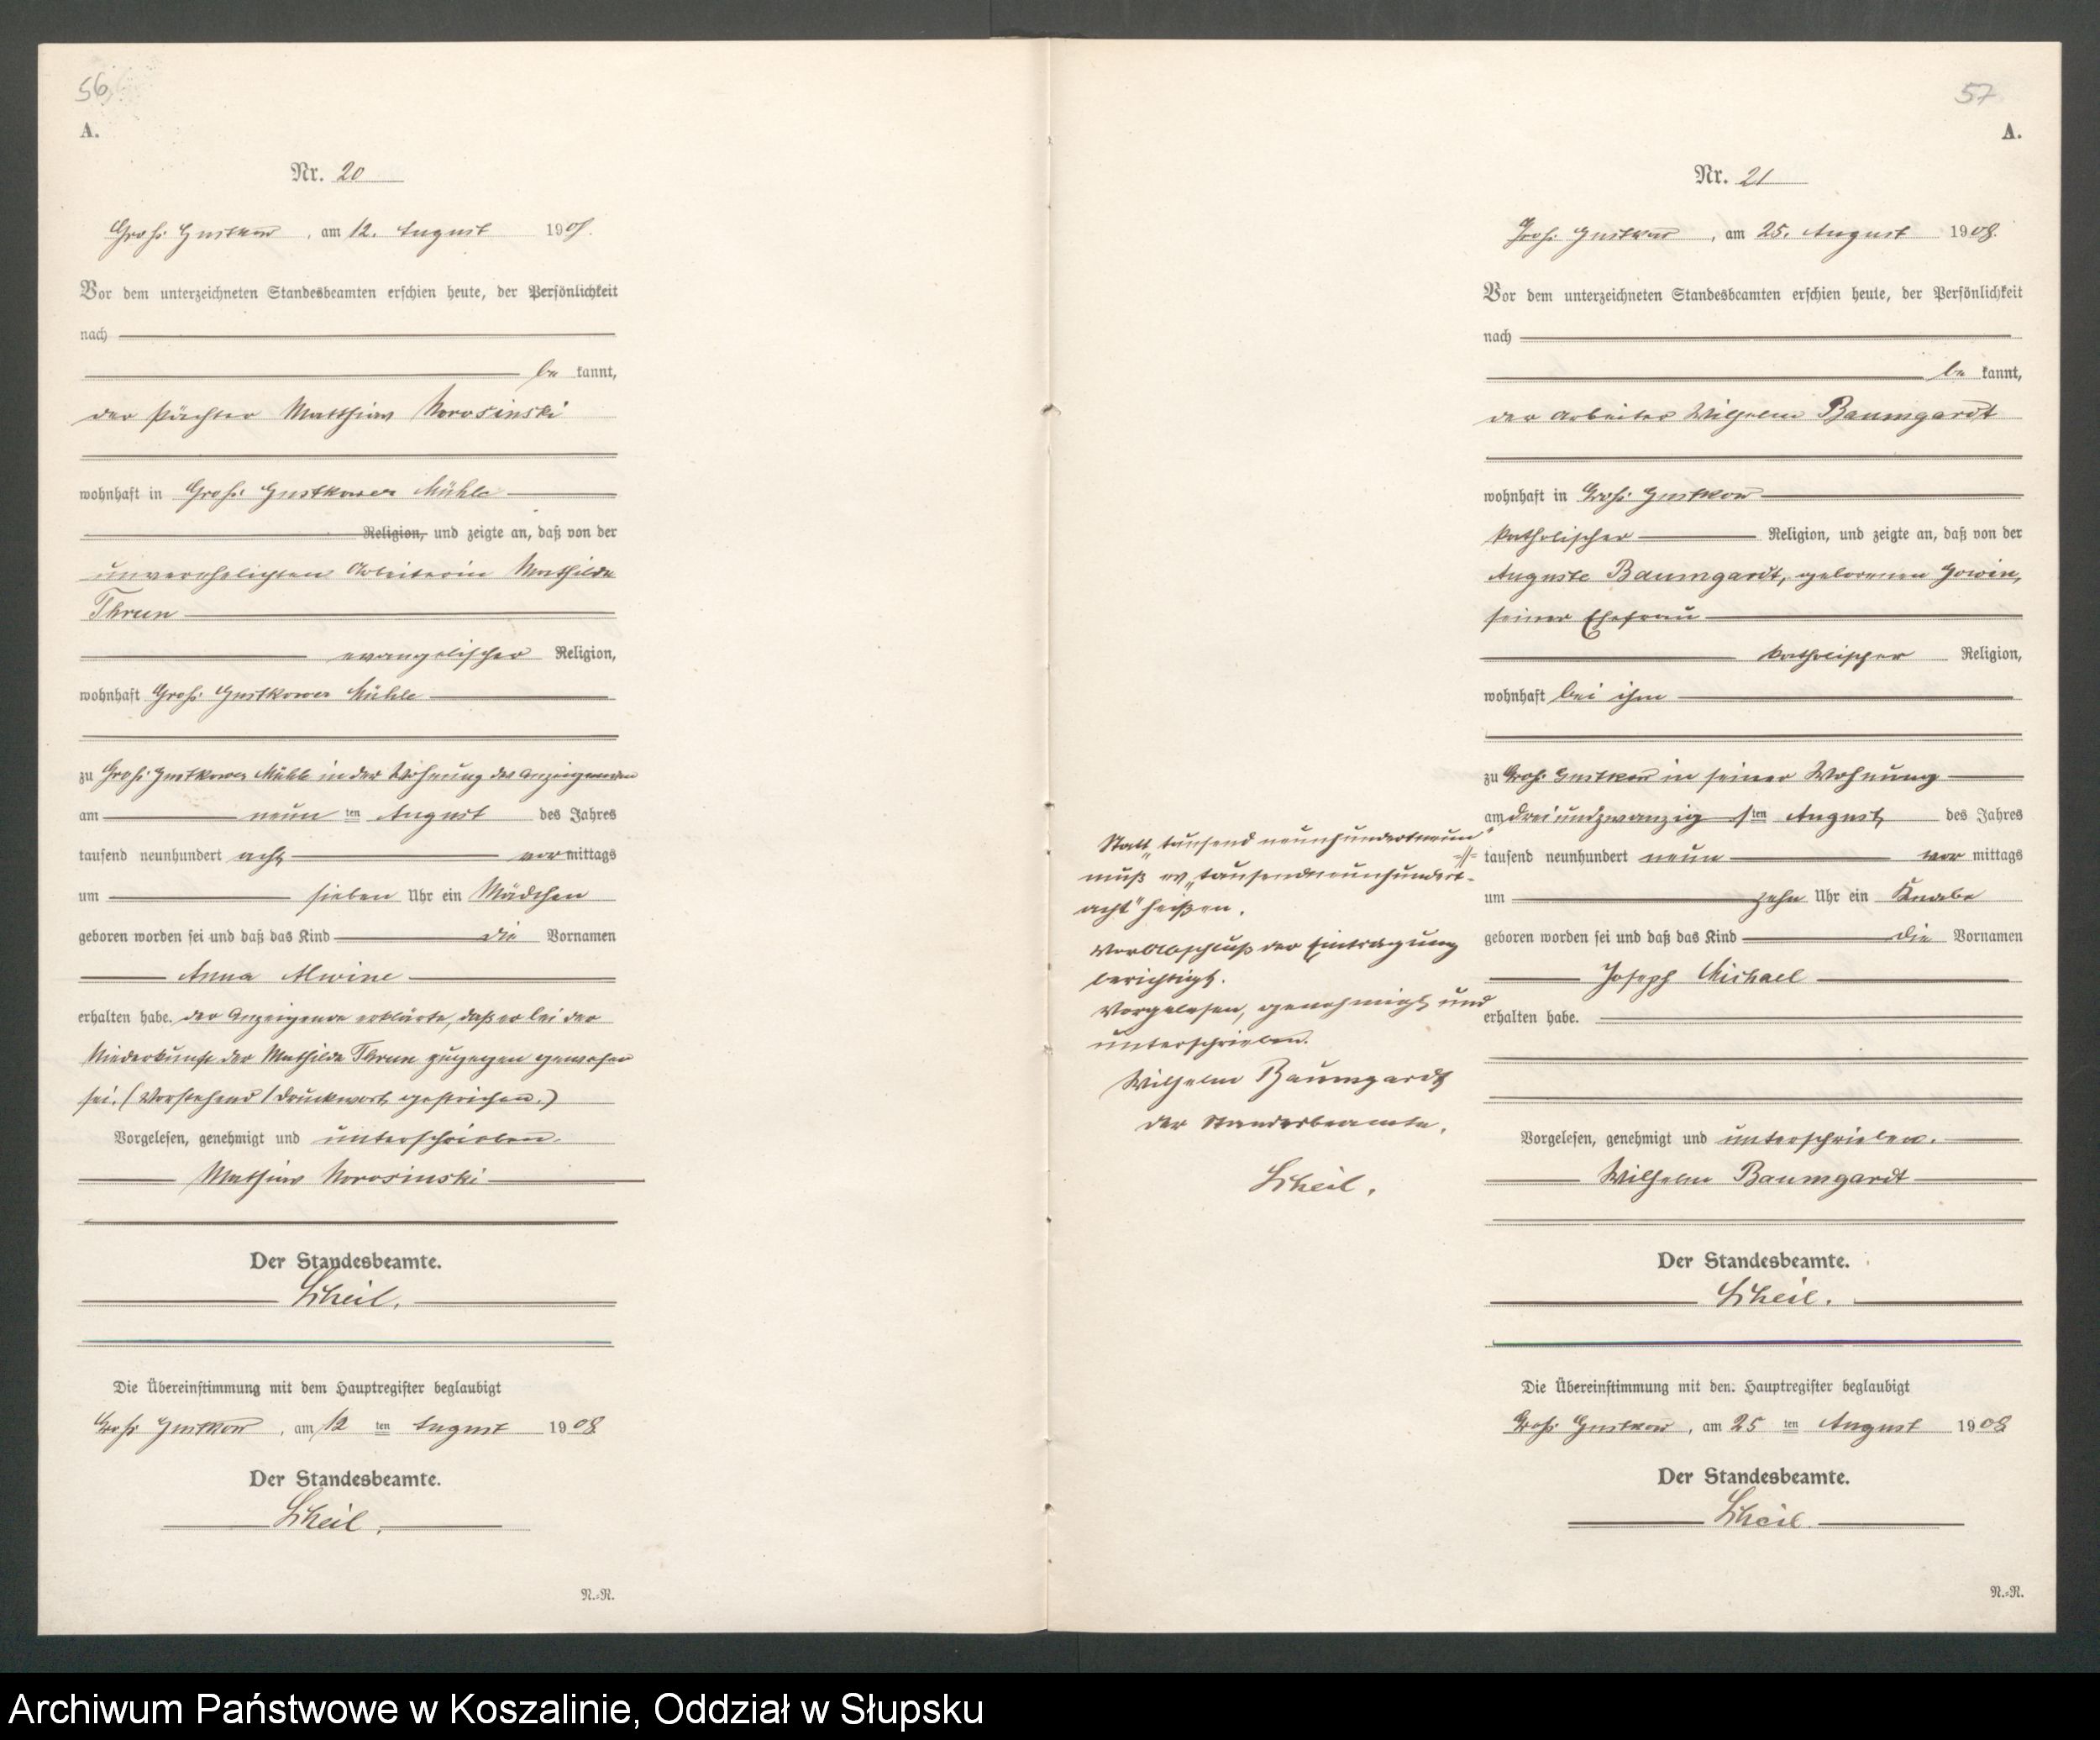 56
A.
Nr. 20
Groß Gustkow, am 12. August 1908.
Vor dem unterzeichneten Standesbeamten erschien heute, der Persönlichkeit
nach
be kannt,
der Pächter Mathias Norosinski
wohnhaft in Groß Gustkower Mühle
Religion, und zeigte an, daß von der
unverehelichten Arbeiterin Mathilde
Thrun
evangelischer Religion,
wohnhaft Groß Gustkower Mühle
zu Groß Gustkower Mühle in der Wohnung des Anzeigenden
am neun ten August des Jahres
tausend neunhundert acht vor mittags
um sieben Uhr ein Mädchen
geboren worden sei und daß das Kind die Vornamen
Anna Alwine
erhalten habe. der Anzeigende erklärte, daß er bei der
Niederkunft der Mathilde Thrun zugegen gewesen
sei. (Vorstehend 1 Druckwort gestrichen.)
Vorgelesen, genehmigt und unterschrieben.
Mathias Norosinski
Der Standesbeamte.
Scheil.
Die Übereinstimmung mit dem Hauptregister beglaubigt
Groß Gustkow, am 12 ten August 1908
Der Standesbeamte.
Scheil.
N.=R.
57
A.
Nr. 21
Groß Gustkow, am 25. August 1908.
Vor dem unterzeichneten Standesbeamten erschien heute, der Persönlichkeit
nach
be kannt,
der Arbeiter Wilhelm Baumgardt
wohnhaft in Groß Gustkow
katholischer Religion, und zeigte an, daß von der
Auguste Baumgardt, geborenen Gowin,
seiner Ehefrau
katholischer Religion,
wohnhaft bei ihm
zu Groß Gustkow in seiner Wohnung
am dreiundzwanzig sten August des Jahres
tausend neunhundert neun vor mittags
um zehn Uhr ein Knabe
geboren worden sei und daß das Kind die Vornamen
Joseph Michael
erhalten habe.
Vorgelesen, genehmigt und unterschrieben.
Wilhelm Baumgardt
Der Standesbeamte.
Scheil.
Die Übereinstimmung mit dem Hauptregister beglaubigt
Groß Gustkow, am 25 ten August 1908
Der Standesbeamte.
Scheil.
N.=R.
Statt „tausend neunhundertneun"
muß es „tausendneunhundert-
acht" heißen.
Vor Abschluß der Eintragung
berichtigt.
Vorgelesen, genehmigt und
unterschrieben.
Wilhelm Baumgardt
Der Standesbeamte.
Scheil.
Archiwum Państwowe w Koszalinie, Oddział w Słupsku